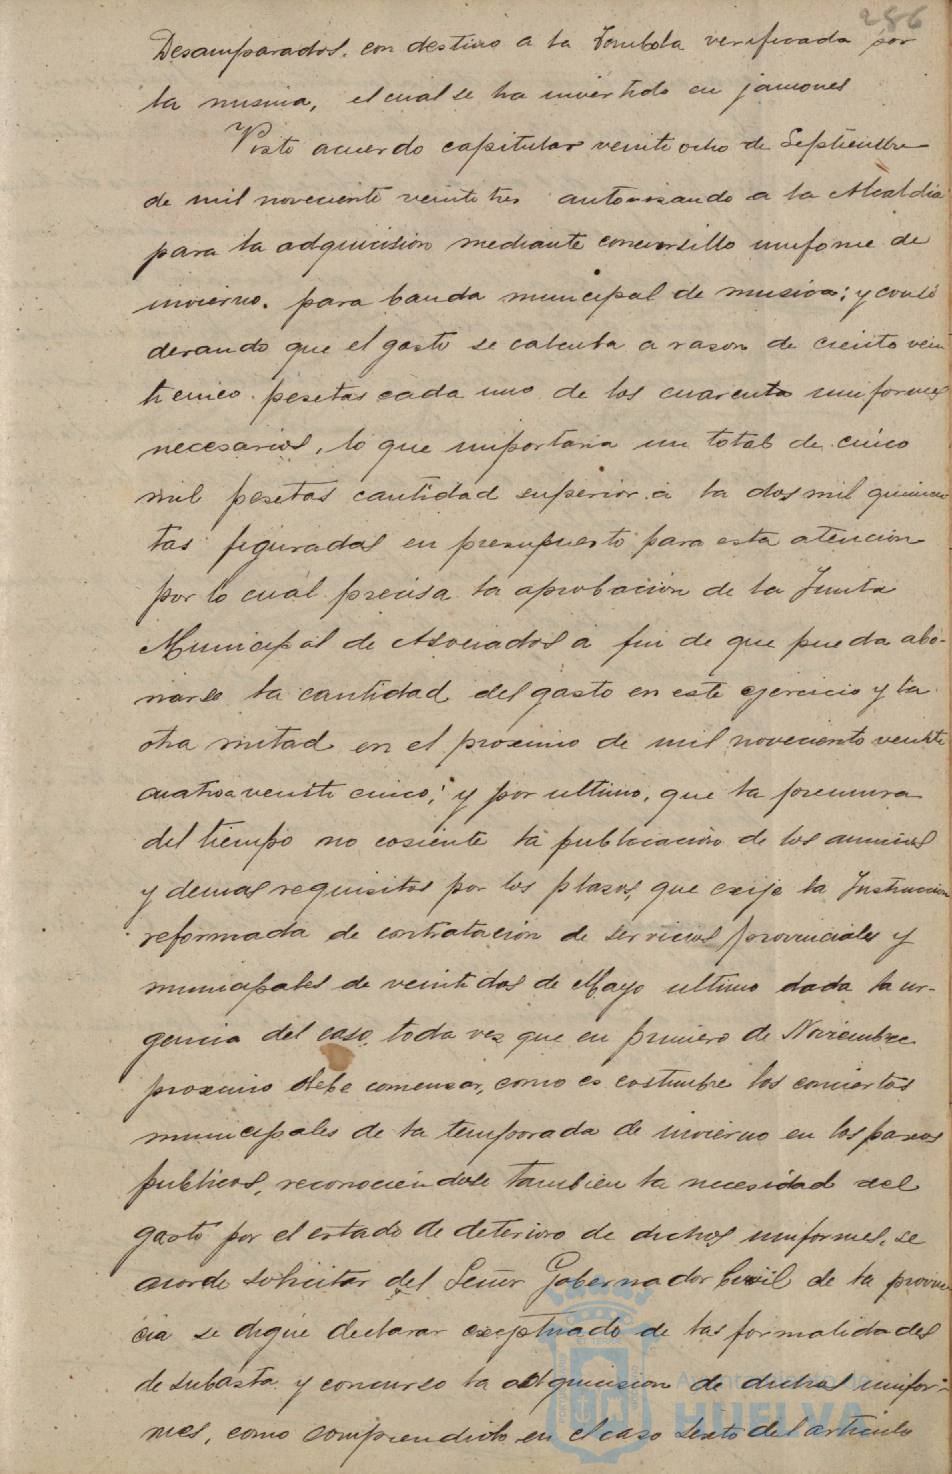 286
Desamparados, con destino a la Tombola verificada por
la misma, el cual se ha invertido en jamones
Visto acuerdo capitular veinte ocho de Septiembre
de mil noveciento veinte tres autorizando a la Alcaldia
para la adquicision mediante concursillo uniforme de
invierno. para banda municipal de musica; y consi
derando que el gasto se calcula a rason de ciento vein
ti cinco pesetas cada uno de los cuarenta uniformes
necesarios, lo que importaria un total de cinco
mil pesetas cantidad superior a la dos mil quinien
tas figuradas en presupuesto para esta atencion
por lo cual precisa la aprobacion de la Junta
Municipal de Asociados a fin de que pueda abo-
narse la cantidad del gasto en este ejercicio y la
otra mitad en el proximo de mil noveciento veinte
cuatro a veinte cinco; y por ultimo, que la premura
del tiempo no cosiente la publicacion de los anuncios
y demas requisitos por los plasos, que exije la Instruccion
reformada de contratacion de servicios provinciales y
municipales de veintidos de Mayo ultimo dada la ur-
gencia del caso, toda vez que en primero de Noviembre
proximo debe comensar, como es costumbre los conciertos
municipales de la temporada de invierno en los paseos
publicos, reconociendose tambien la necesidad del
gasto por el estado de deterioro de dichos uniformes, se
acorde solicitar del Señor Gobernador Civil de la provin
cia se digne declarar exeptuado de las formalidades
de subasta y concurso la adquicision de dichos unifor-
mes, como comprendido en el caso sexto del articulo
Ayuntamiento de
HUELVA